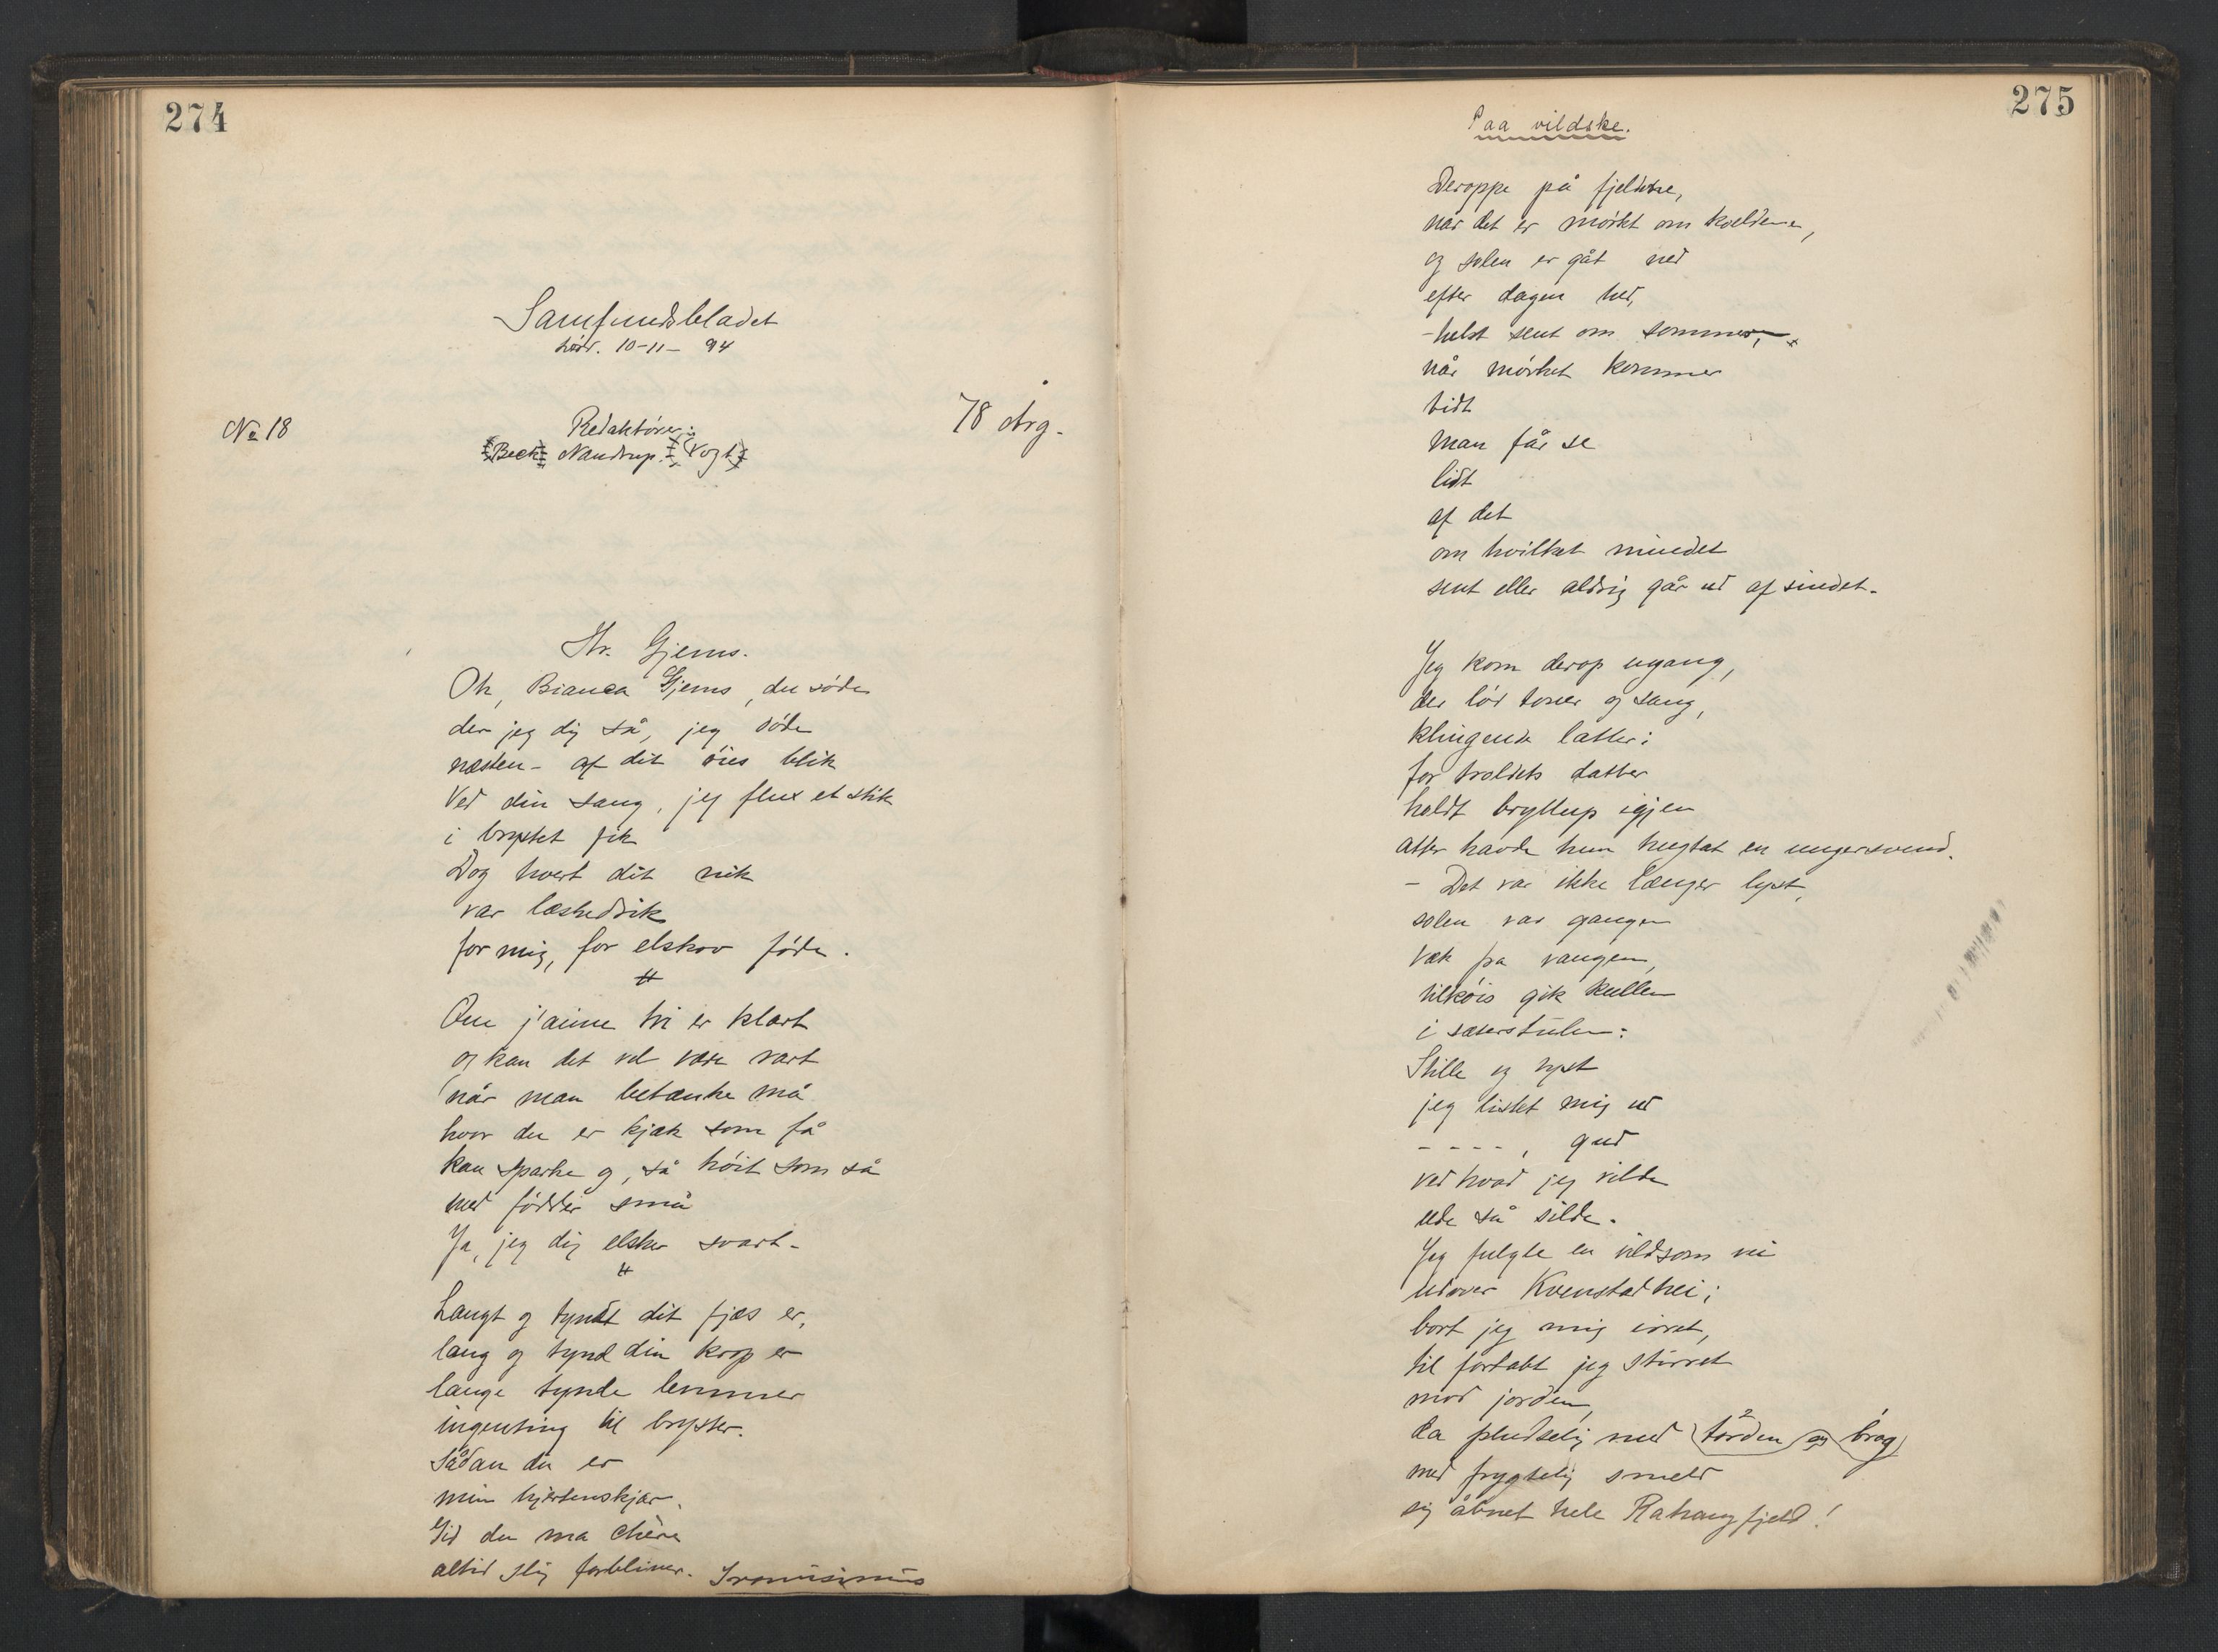 274
Samfundsbladet
Lørd. 10-11- 94
No 18
78 Årg.
Redaktører:
(Beck) Nandrup. (Vogt)
Hr. Gjems.
Oh, Bianca Gjems, du søde
der jeg dig så, jeg døde
næsten - af dit øies blik
Ved din sang, jeg flux et stik
i brystet fik
Dog hvert dit nik
var læskedrik
for mig, for elskov føde.
Que j'aime tri er klart
og kan det vel være rart
når man betænke må
hvor du er kjæk som få
kan sparke og, så høit som så
med fødder små
Ja, jeg dig elsker svart.
Langt og tyndt dit fjæs er,
lang og tynd din krop er
lange tynde lemmer
ingenting til bryster.
Sådan du er
min hjertenskjær.
Gid du ma chère
altid slig forbliver. Ironisimus
275
Paa vildske.
Deroppe på fjeldene,
når det er mørkt om kveldene,
og solen er gåt ned
efter dagen hed,
- helst sent om sommer,
når mørket kommer
tidt
man får se
lidt
af det
om hvilket mindet
sent eller aldrig går ud af sindet.
Jeg kom derop engang,
der lød toner og sang,
klingende latter:
for troldets datter
holdt bryllup igjen
atter havde hun hugtat en ungersvend.
- Det var ikke længer lyst,
solen var gangen
væk fra vangen,
tilkøis gik kullen
i sæterstulen:
Stille og tyst
jeg listet mig ud
- - - - , gud
ved hvad jeg vilde
ude så silde.
Jeg fulgte en vildsom vei
udover Kvenstadhei;
bort jeg mig irret,
til fortabt jeg stirret
mod jorden,
da pludselig med torden og brag
2 1
med frygtelig smeld
sig åbnet hele Rahaugfjeld!